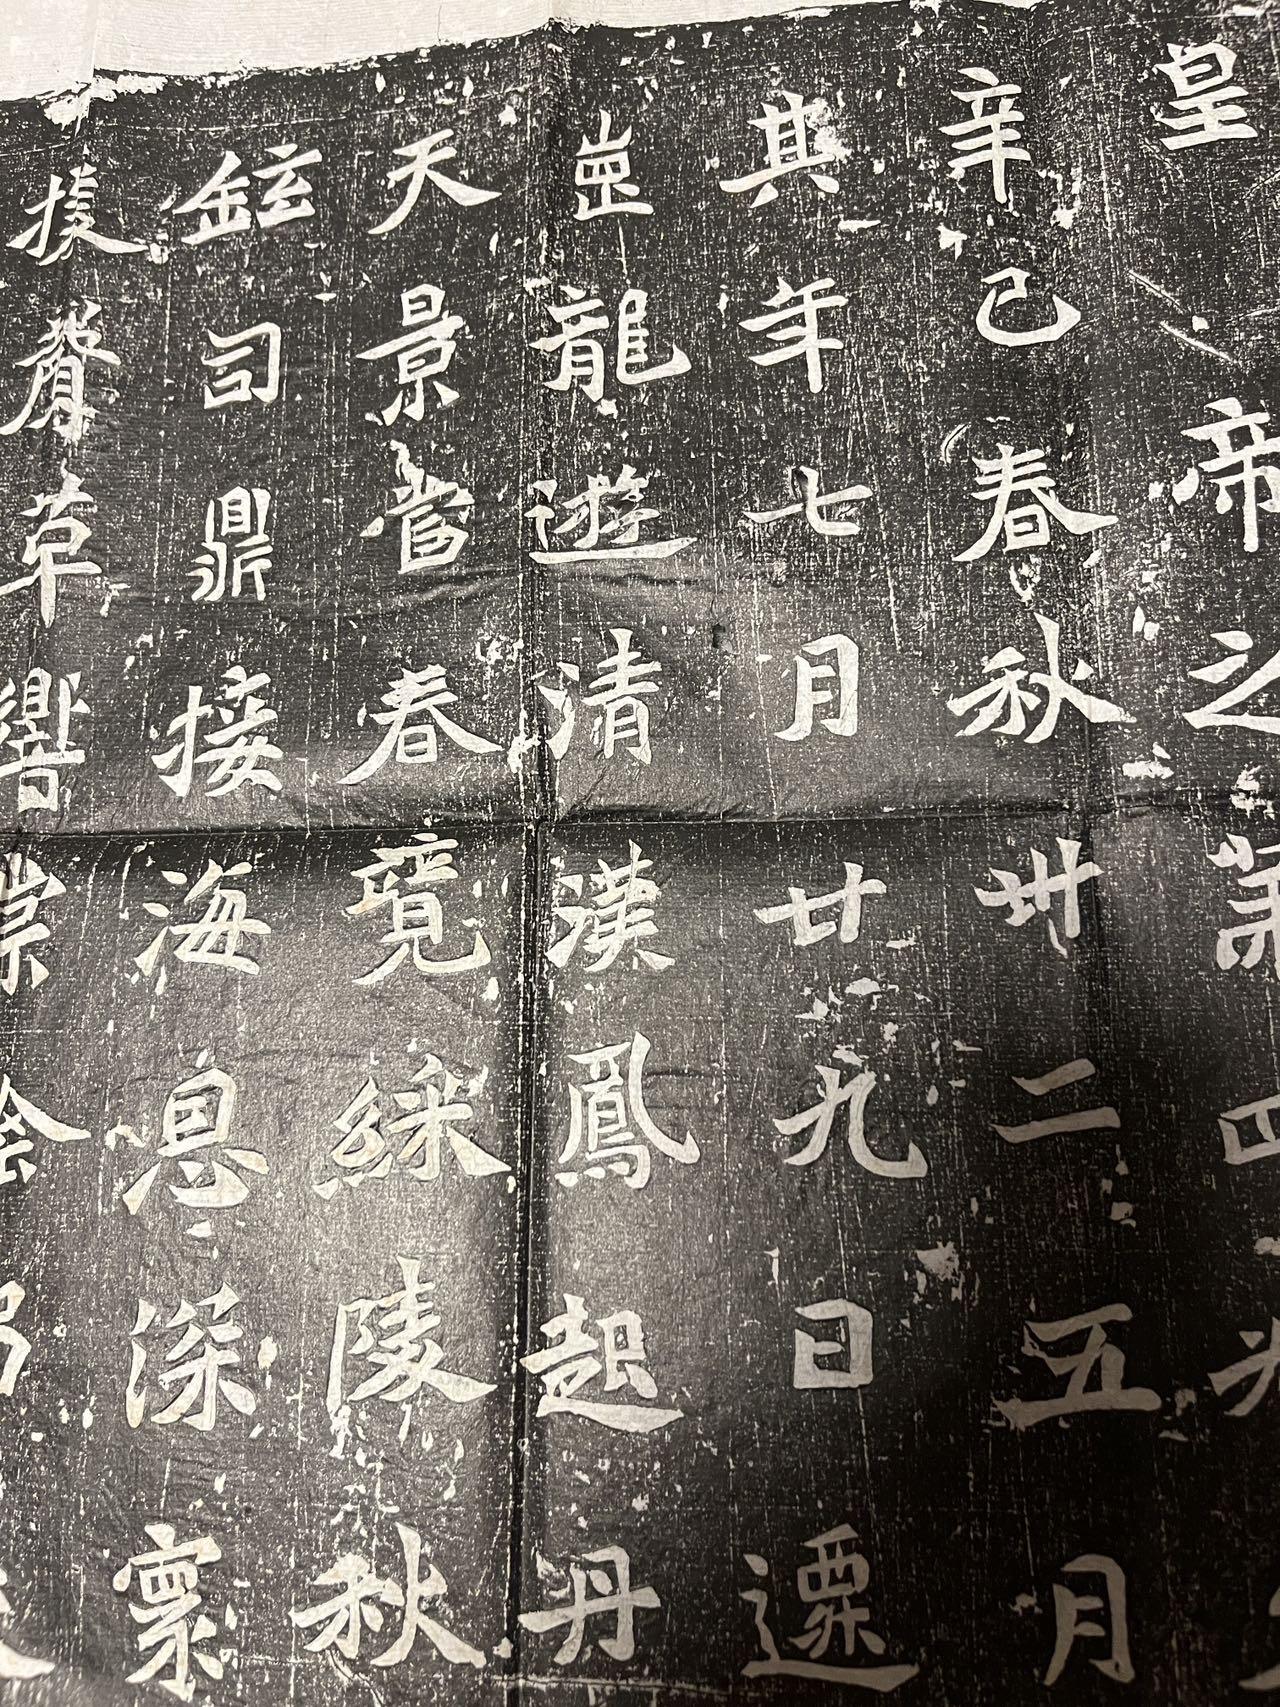 皇帝之第四
辛巳春秋卅二五月
其年七月廿九日遷
龍遊清漢鳳起丹
天景春竟綵陵秋
鉉司鼎接海息深
援聲革響